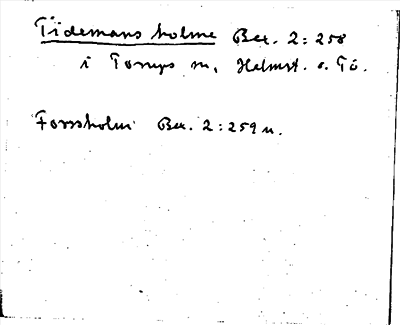 Tidemans holme Ber. 2:258
i Torups m, Helmst. o. Tö.
Forsholm Ber. 2:259 n.